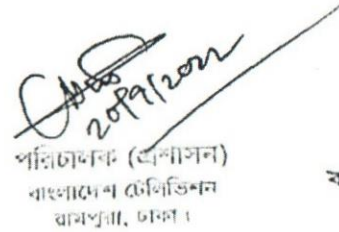 20/9/2022
পরিচালক (প্রশাসন)
বাংলাদেশ টেলিভিশন
রামপুরা, ঢাকা।